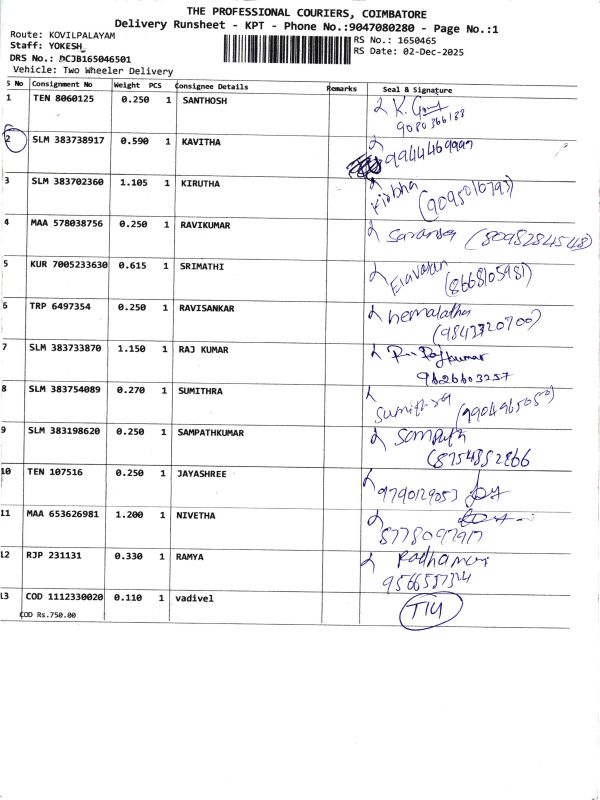 THE PROFESSIONAL COURIERS, COIMBATORE
Delivery Runsheet - KPT - Phone No.:9047080280 - Page No.:1
Route: KOVILPALAYAM
RS No.: 1650465
Staff: YOKESH
RS Date: 02-Dec-2025
DRS No.: DCJB165046501
Vehicle: Two Wheeler Delivery
S No Consignment No Weight PCS Consignee Details Remarks Seal & Signature
1 TEN 8060125 0.250 1 SANTHOSH
9080366188
2 SLM 383738917 0.590 1 KAVITHA
3 SLM 383702360 1.105 1 KIRUTHA
(9095010793)
4 MAA 578038756 0.250 1 RAVIKUMAR
(8098284548)
5 KUR 7005233630 0.615 1 SRIMATHI
(8668105981)
6 TRP 6497354 0.250 1 RAVISANKAR hemalatha
(9843320700)
7 SLM 383733870 1.150 1 RAJ KUMAR Rajkumar
9626603257
8 SLM 383754089 0.270 1 SUMITHRA Sumithra (9904965050)
9 SLM 383198620 0.250 1 SAMPATHKUMAR Sampath
10 TEN 107516 0.250 1 JAYASHREE
9790129053
11 MAA 653626981 1.200 1 NIVETHA
8778097917
12 RJP 231131 0.330 1 RAMYA
13 COD 1112330020 0.110 1 vadivel
COD Rs.750.00